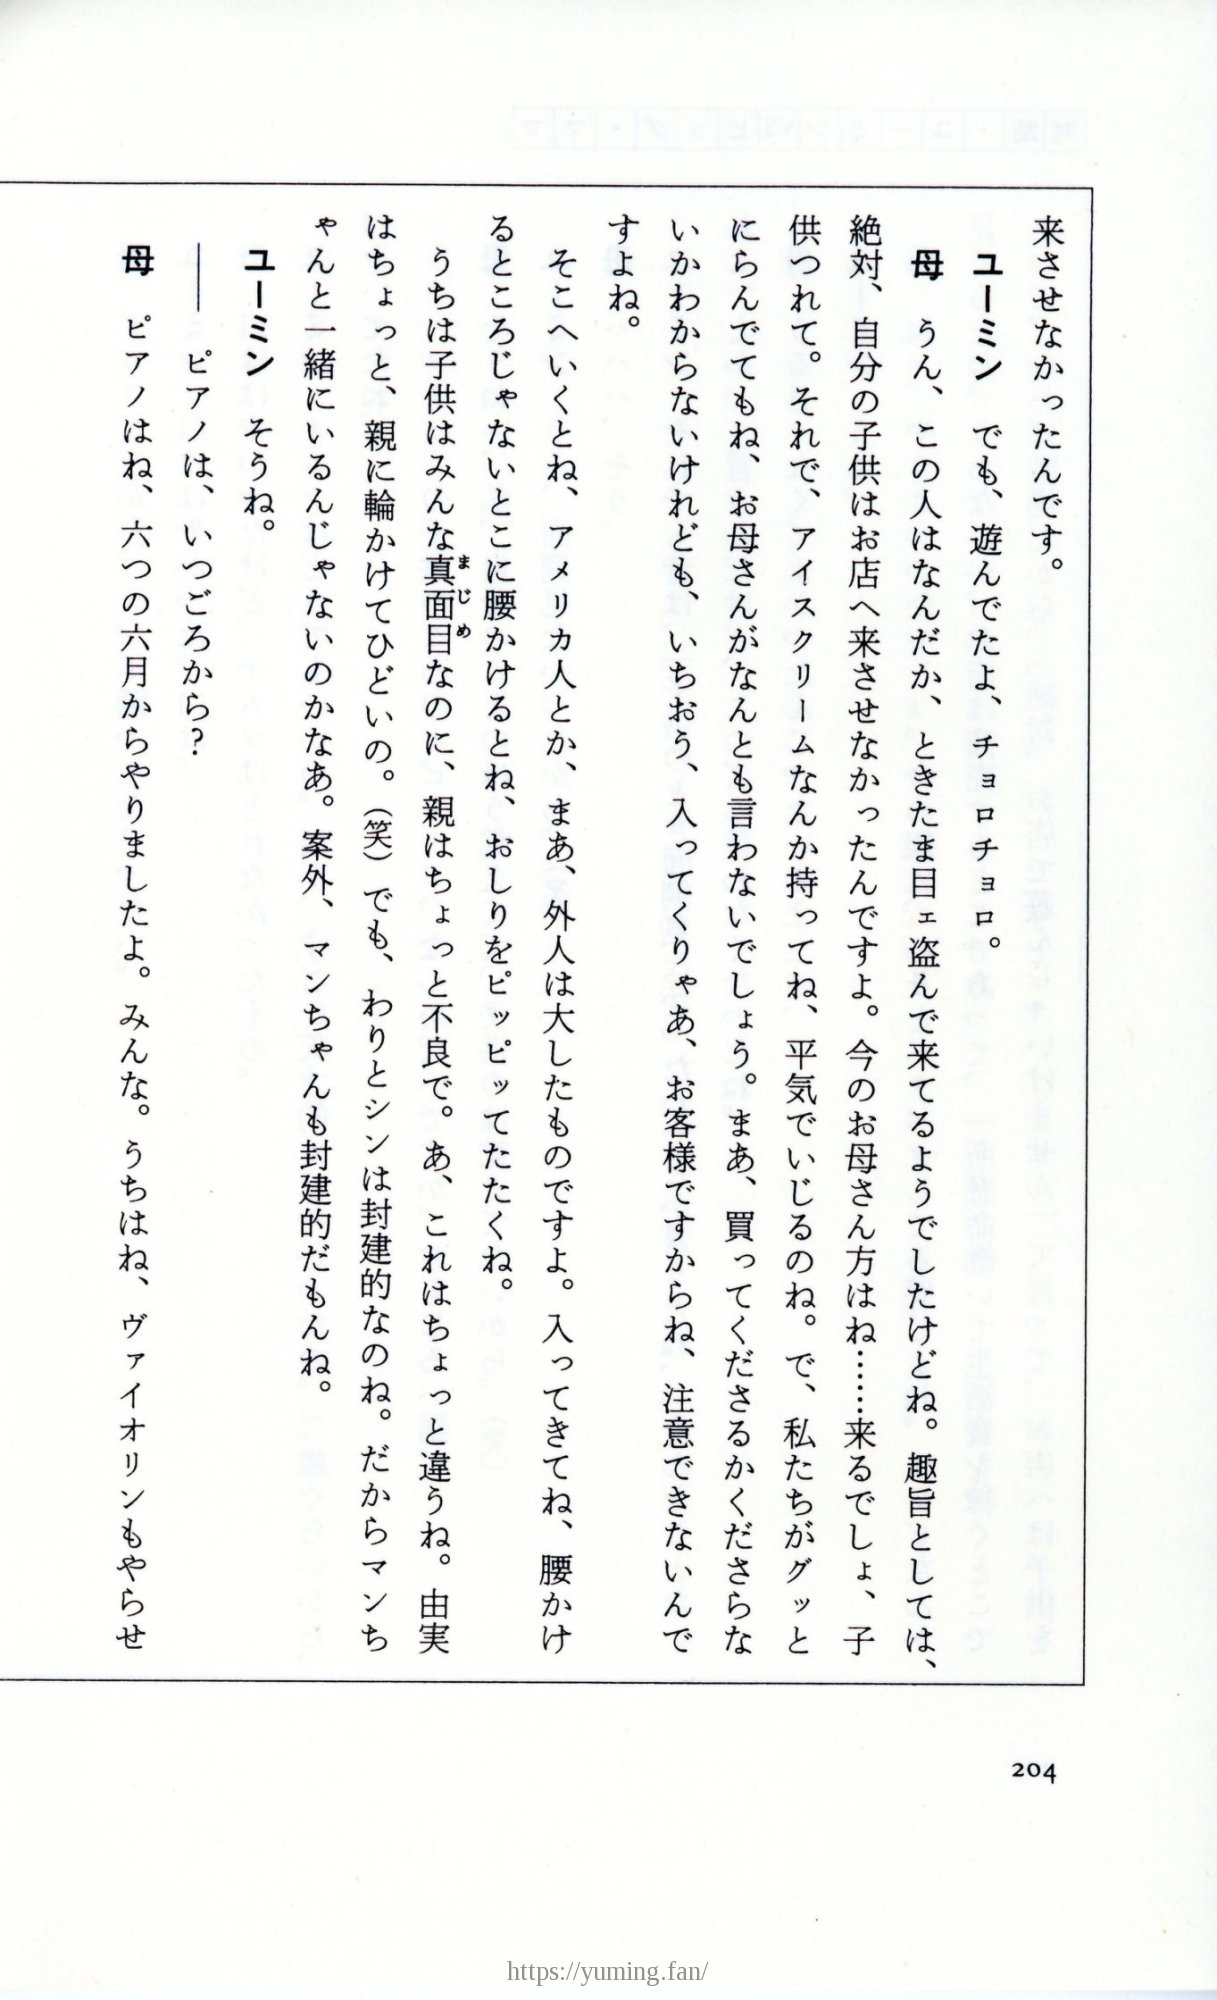 来させなかったんです。
ユーミン　でも、遊んでたよ、チョロチョロ。
母　うん、この人はなんだか、ときたま目ェ盗んで来てるようでしたけどね。趣旨としては、
絶対、自分の子供はお店へ来させなかったんですよ。今のお母さん方はね……来るでしょ、子
供つれて。それで、アイスクリームなんか持ってね、平気でいじるのね。で、私たちがグッと
にらんでてもね、お母さんがなんとも言わないでしょう。まあ、買ってくださるかくださらな
いかわからないけれども、いちおう、入ってくりゃあ、お客様ですからね、注意できないんで
すよね。
そこへいくとね、アメリカ人とか、まあ、外人は大したものですよ。入ってきてね、腰かけ
るところじゃないとこに腰かけるとね、おしりをピッピッてたたくね。
うちは子供はみんな真面目なのに、親はちょっと不良で。あ、これはちょっと違うね。由実
まじめ
はちょっと、親に輪かけてひどいの。（笑）でも、わりとシンは封建的なのね。だからマンち
ゃんと一緒にいるんじゃないのかなあ。案外、マンちゃんも封建的だもんね。
ユーミン　そうね。
――ピアノは、いつごろから？
母　ピアノはね、六つの六月からやりましたよ。みんな。うちはね、ヴァイオリンもやらせ
204
https://yuming.fan/